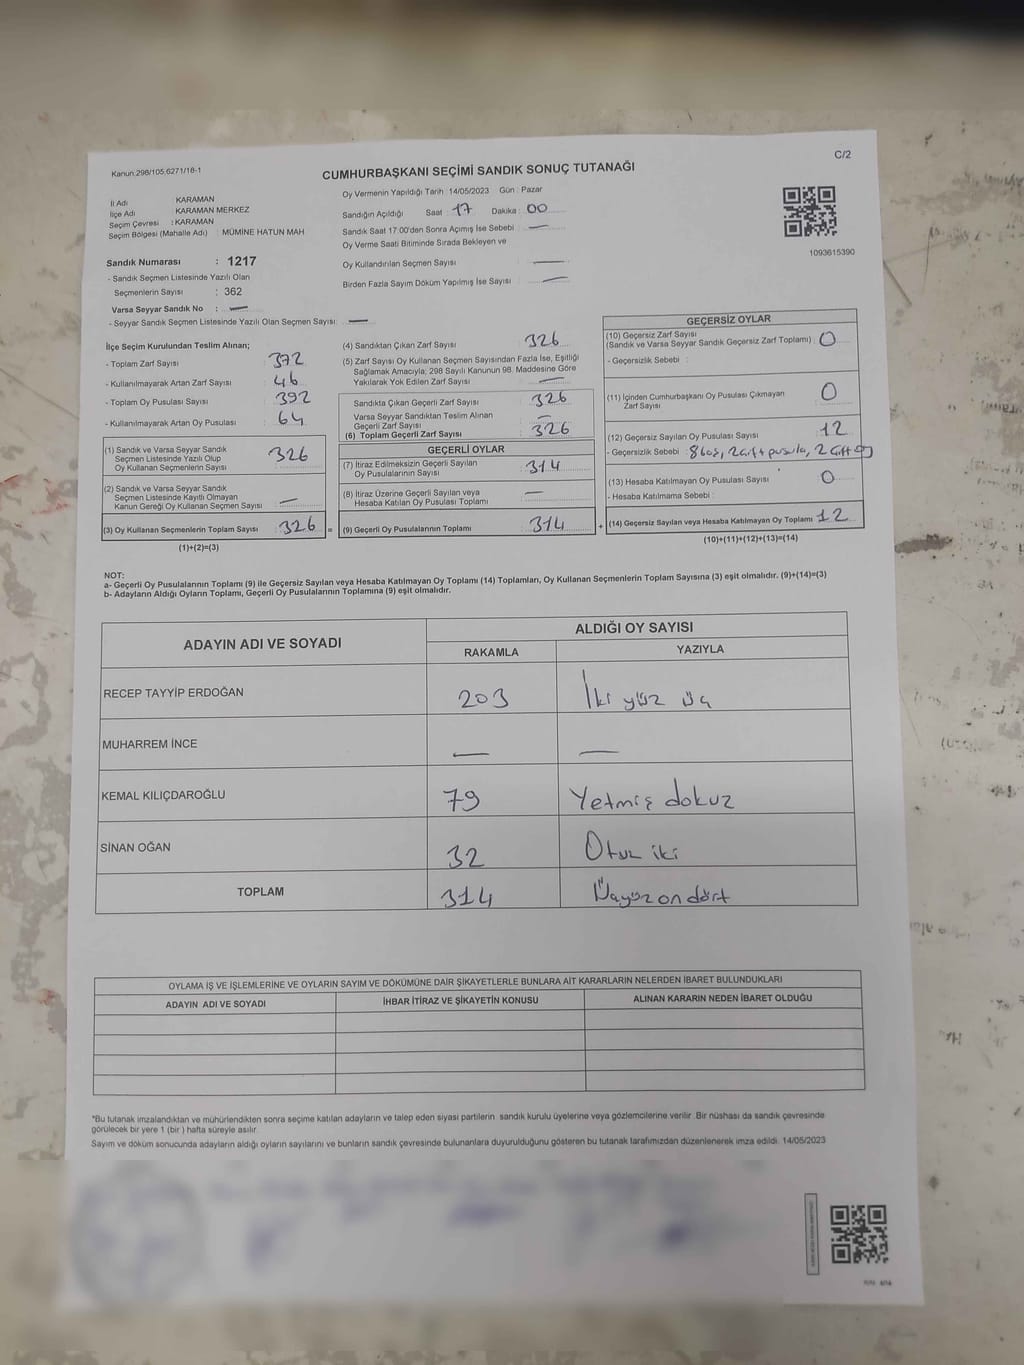 C/2
Kanun.298/105,6271/18-1
CUMHURBAŞKANI SEÇİMİ SANDIK SONUÇ TUTANAĞI
İl Adı : KARAMAN
İlçe Adı : KARAMAN MERKEZ
Seçim Çevresi : KARAMAN
Seçim Bölgesi (Mahalle Adı) : MÜMİNE HATUN MAH
Sandık Numarası : 1217
- Sandık Seçmen Listesinde Yazılı Olan
Seçmenlerin Sayısı : 362
Varsa Seyyar Sandık No : —
- Seyyar Sandık Seçmen Listesinde Yazılı Olan Seçmen Sayısı: —
Oy Vermenin Yapıldığı Tarih : 14/05/2023 Gün : Pazar
Sandığın Açıldığı Saat : 17 Dakika : 00
Sandık Saat 17.00'den Sonra Açımış İse Sebebi : —
Oy Verme Saati Bitiminde Sırada Bekleyen ve
Oy Kullandırılan Seçmen Sayısı : —
Birden Fazla Sayım Döküm Yapılmış İse Sayısı : —
1093615390
İlçe Seçim Kurulundan Teslim Alınan;
- Toplam Zarf Sayısı : 372
- Kullanılmayarak Artan Zarf Sayısı : 46
- Toplam Oy Pusulası Sayısı : 392
- Kullanılmayarak Artan Oy Pusulası : 64
(1) Sandık ve Varsa Seyyar Sandık
Seçmen Listesinde Yazılı Olup
Oy Kullanan Seçmenlerin Sayısı : 326
(2) Sandık ve Varsa Seyyar Sandık
Seçmen Listesinde Kayıtlı Olmayan
Kanun Gereği Oy Kullanan Seçmen Sayısı : —
(3) Oy Kullanan Seçmenlerin Toplam Sayısı : 326
(1)+(2)=(3)
(4) Sandıktan Çıkan Zarf Sayısı : 326
(5) Zarf Sayısı Oy Kullanan Seçmen Sayısından Fazla İse, Eşitliği
Sağlamak Amacıyla; 298 Sayılı Kanunun 98. Maddesine Göre
Yakılarak Yok Edilen Zarf Sayısı : —
Sandıkta Çıkan Geçerli Zarf Sayısı : 326
Varsa Seyyar Sandıktan Teslim Alınan
Geçerli Zarf Sayısı : —
(6) Toplam Geçerli Zarf Sayısı : 326
GEÇERLİ OYLAR
(7) İtiraz Edilmeksizin Geçerli Sayılan
Oy Pusulalarının Sayısı : 314
(8) İtiraz Üzerine Geçerli Sayılan veya
Hesaba Katılan Oy Pusulası Toplamı : —
= (9) Geçerli Oy Pusulalarının Toplamı : 314
GEÇERSİZ OYLAR
(10) Geçersiz Zarf Sayısı
(Sandık ve Varsa Seyyar Sandık Geçersiz Zarf Toplamı) : 0
- Geçersizlik Sebebi :
(11) İçinden Cumhurbaşkanı Oy Pusulası Çıkmayan
Zarf Sayısı : 0
(12) Geçersiz Sayılan Oy Pusulası Sayısı : 12
- Geçersizlik Sebebi : 8 boş, 2 çift pusula, 2 çift oy
(13) Hesaba Katılmayan Oy Pusulası Sayısı : 0
- Hesaba Katılmama Sebebi :
+ (14) Geçersiz Sayılan veya Hesaba Katılmayan Oy Toplamı : 12
(10)+(11)+(12)+(13)=(14)
NOT:
a- Geçerli Oy Pusulalarının Toplamı (9) ile Geçersiz Sayılan veya Hesaba Katılmayan Oy Toplamı (14) Toplamları, Oy Kullanan Seçmenlerin Toplam Sayısına (3) eşit olmalıdır. (9)+(14)=(3)
b- Adayların Aldığı Oyların Toplamı, Geçerli Oy Pusulalarının Toplamına (9) eşit olmalıdır.
ADAYIN ADI VE SOYADI ALDIĞI OY SAYISI
RAKAMLA YAZIYLA
RECEP TAYYİP ERDOĞAN 203 İki yüz üç
MUHARREM İNCE — —
KEMAL KILIÇDAROĞLU 79 Yetmiş dokuz
SİNAN OĞAN 32 Otuz iki
TOPLAM 314 Üçyüz on dört
OYLAMA İŞ VE İŞLEMLERİNE VE OYLARIN SAYIM VE DÖKÜMÜNE DAİR ŞİKAYETLERLE BUNLARA AİT KARARLARIN NELERDEN İBARET BULUNDUKLARI
ADAYIN ADI VE SOYADI İHBAR İTİRAZ VE ŞİKAYETİN KONUSU ALINAN KARARIN NEDEN İBARET OLDUĞU
*Bu tutanak imzalandıktan ve mühürlendikten sonra seçime katılan adayların ve talep eden siyasi partilerin sandık kurulu üyelerine veya gözlemcilerine verilir. Bir nüshası da sandık çevresinde
görülecek bir yere 1 (bir ) hafta süreyle asılır.
Sayım ve döküm sonucunda adayların aldığı oyların sayılarını ve bunların sandık çevresinde bulunanlara duyurulduğunu gösteren bu tutanak tarafımızdan düzenlenerek imza edildi. 14/05/2023